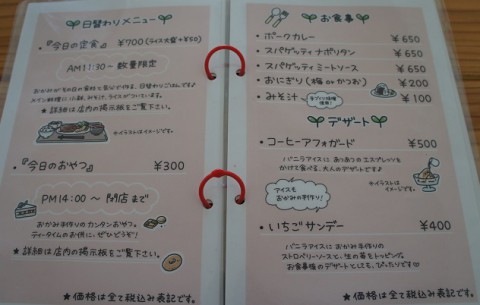 日替わりメニュー
・『今日の定食』 ¥700(ライス大盛+¥50)
AM11:30〜 数量限定
★詳細は店内の掲示板をご覧下さい。
※イラストはイメージです。
・『今日のおやつ』 ¥300
PM14:00 〜 閉店まで
おかみ手作りのカンタンおやつ。
ティータイムのお供に、ぜひどうぞ!
★詳細は店内の掲示板をご覧下さい。
★価格は全て税込み表記です。
お食事
・ポークカレー ¥650
・スパゲッティ ナポリタン ¥650
・スパゲッティ ミートソース ¥650
・おにぎり(梅 or かつお) ¥200
・みそ汁 ¥100
デザート
・コーヒーアフォガード ¥500
バニラアイスに あつあつの エスプレッソを
かけて食べる、大人のデザートです♪
アイスも
おかみの手作り!
※イラストは
イメージです。
・いちごサンデー ¥400
バニラアイスに おかみ手作りの
ストロベリーソースと、生の苺をトッピング。
お食事後のデザートとしても、ぴったりです♡
★価格は全て税込み表記です。